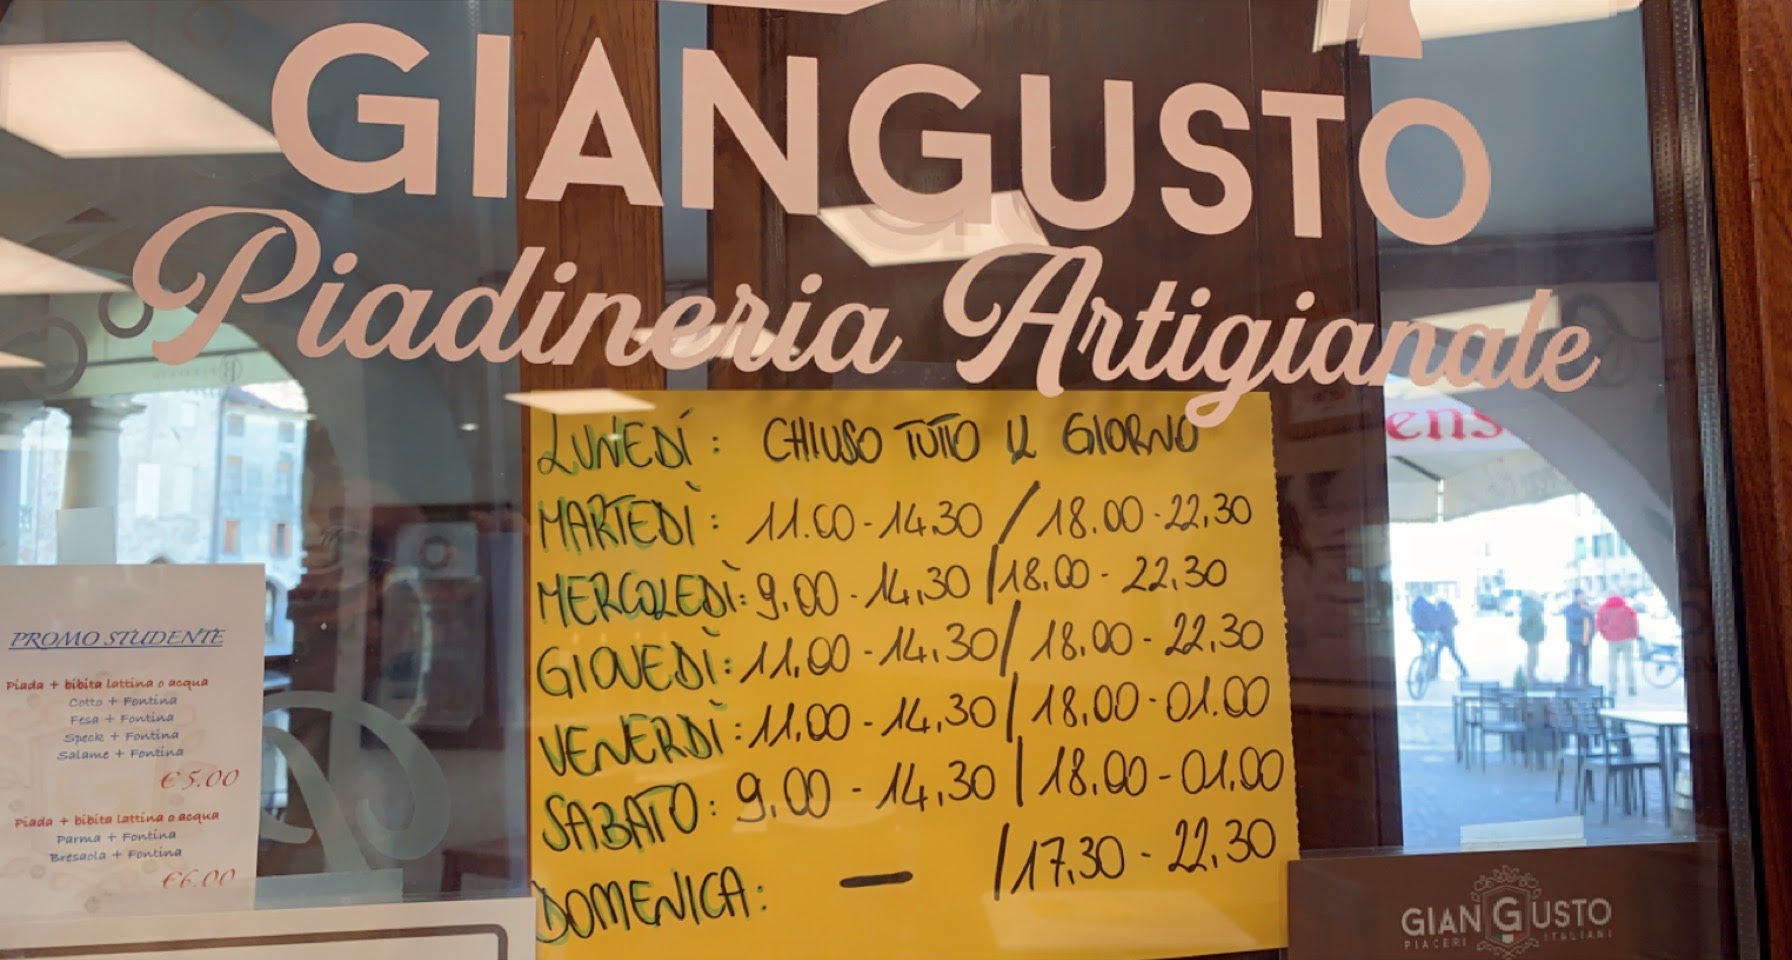 GIANGUSTO
Piadineria Artigianale
LUNEDÍ: CHIUSO TUTTO IL GIORNO
MARTEDÌ: 11.00-14.30 / 18.00-22.30
MERCOLEDÌ: 9.00-14.30 / 18.00-22.30
GIOVEDÌ: 11.00-14.30 / 18.00-22.30
VENERDÌ: 11.00-14.30 / 18.00-01.00
SABATO: 9.00-14.30 / 18.00-01.00
DOMENICA: — / 17.30-22.30
PROMO STUDENTE
Piada + bibita lattina o acqua
Cotto + Fontina
Fesa + Fontina
Speck + Fontina
Salame + Fontina
€5.00
Piada + bibita lattina o acqua
Parma + Fontina
Bresaola + Fontina
€6.00
ens
GIANGUSTO
PIACERI ITALIANI